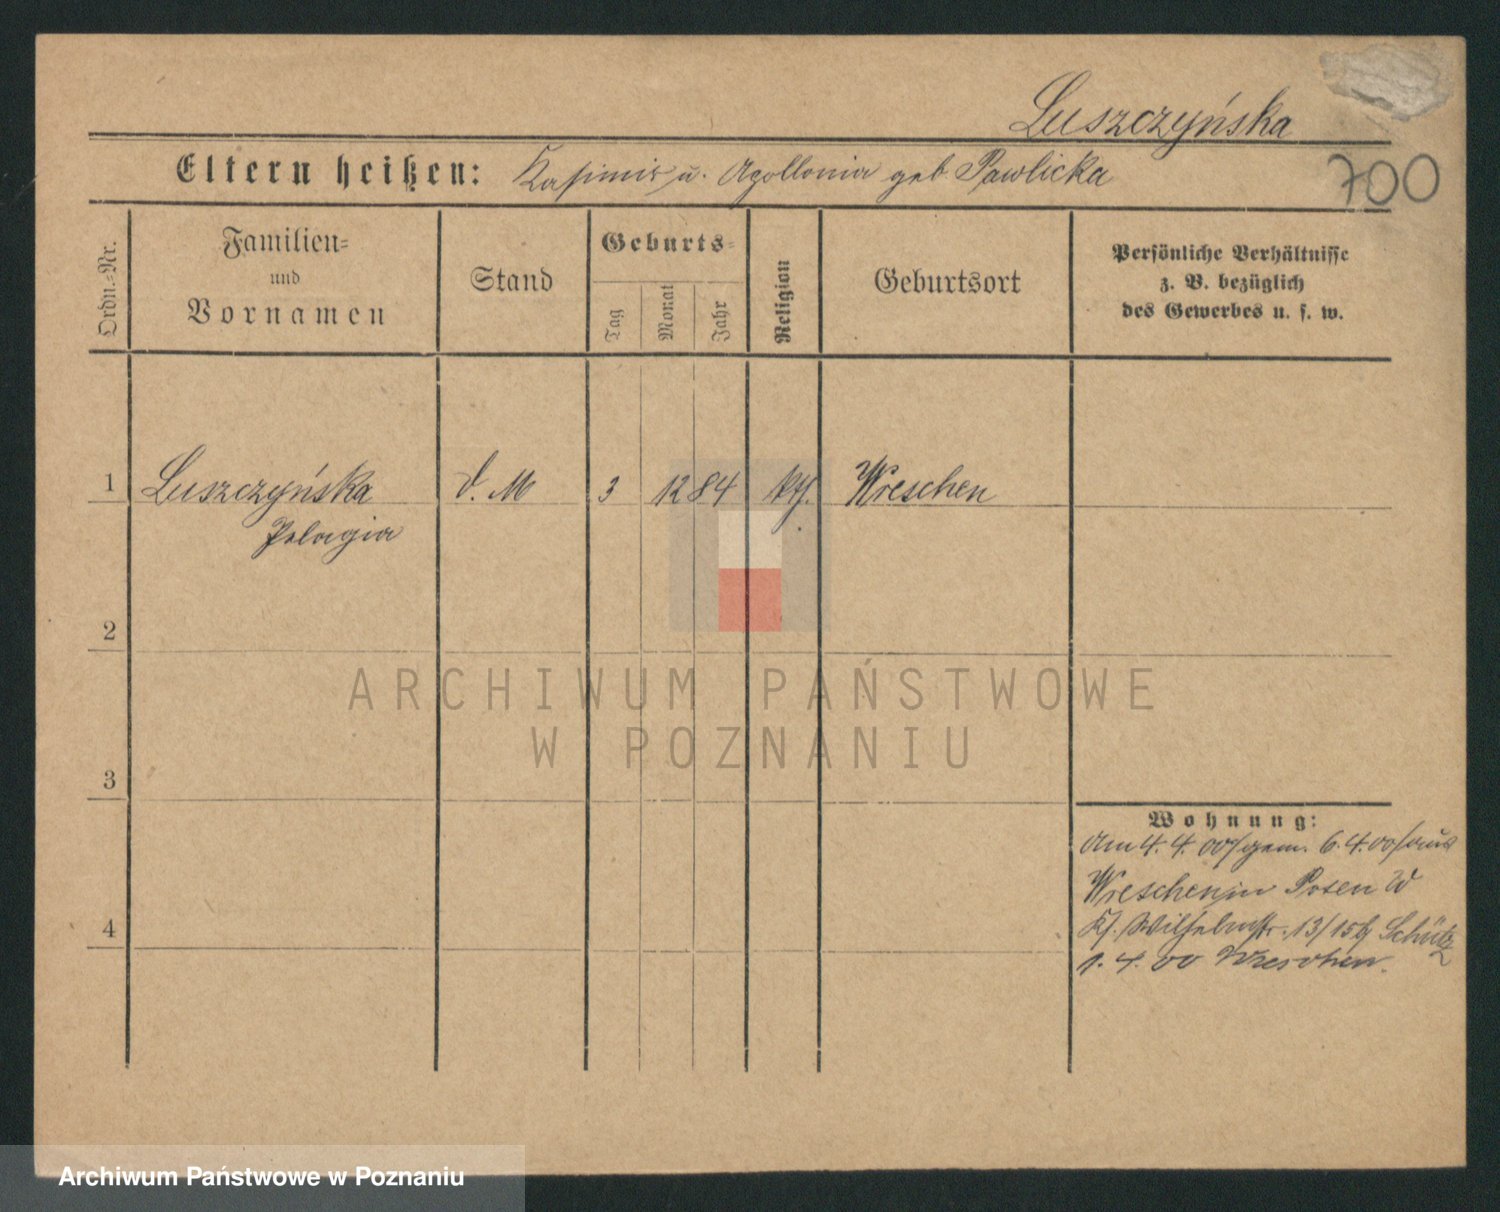 Luszczyńska
700
Eltern heißen: Kasimir u. Apollonia geb Pawlicka
Ordn.=Nr.
Familien=
und
Vornamen
Stand
Geburts=
Tag
Monat
Jahr
Religion
Geburtsort
Persönliche Verhältnisse
z. B. bezüglich
des Gewerbes u. s. w.
1 Luszczyńska d. M 3 12 84 kth. Wreschen
Pelagia
2
3
4
Wohnung:
Am 4. 4. 00/gem. 6. 4. 00/aus
Wreschen in Posen W
Kl. Wilhelmstr. 13/15 b/ Schütz
1. 4. 00 Wreschen.
ARCHIWUM PAŃSTWOWE
W POZNANIU
Archiwum Państwowe w Poznaniu